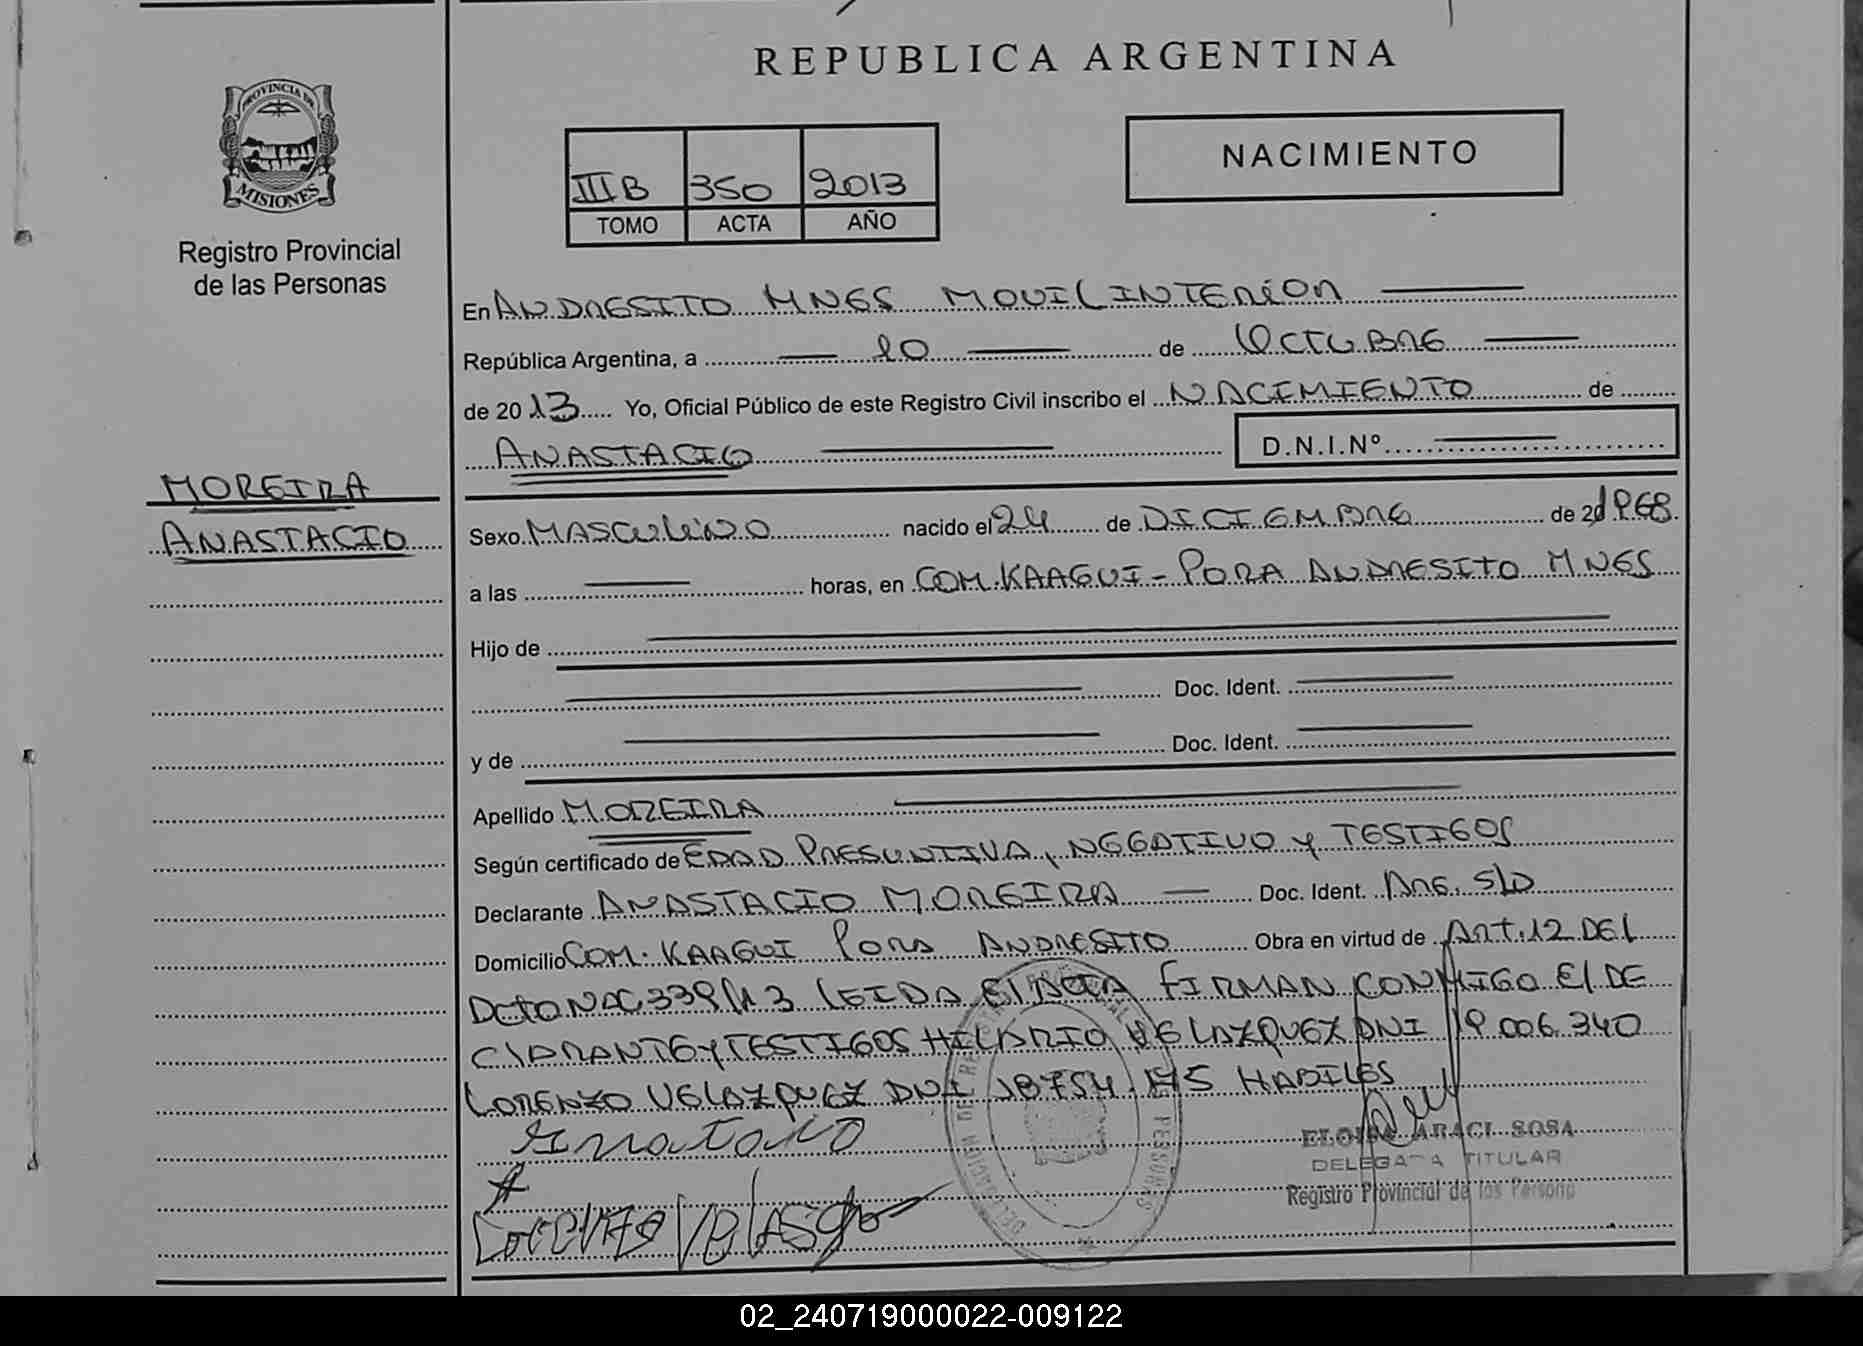 REPUBLICA ARGENTINA
PROVINCIA DE
MISIONES
Registro Provincial
de las Personas
NACIMIENTO
III B 350 2013
TOMO ACTA AÑO
En ANDRESITO MNES MOVIL INTERIOR
República Argentina, a 10 de OCTUBRE
de 20 13 Yo, Oficial Público de este Registro Civil inscribo el NACIMIENTO de
ANASTACIO D.N.I.Nº
MOREIRA
ANASTACIO
Sexo MASCULINO nacido el 24 de DICIEMBRE de 1968
a las horas, en COM. KAAGUI - PORA ANDRESITO MNES
Hijo de
Doc. Ident.
y de Doc. Ident.
Apellido MOREIRA
Según certificado de EDAD PRESUNTIVA, NEGATIVO y TESTIGOS
Declarante ANASTACIO MOREIRA Doc. Ident. ARG. S/D
Domicilio COM. KAAGUI PORA ANDRESITO Obra en virtud de ART. 12 DEL
DCTO NAC 339/13 LEIDA EL ACTA FIRMAN CONMIGO EL DE
CLARANTE y TESTIGOS HILARIO VELAZQUEZ DNI 19.006.340
LORENZO VELAZQUEZ DNI 18754.175 HABILES
ELOISA ARACI SOSA
DELEGADA TITULAR
Registro Provincial de las Persona
02_240719000022-009122